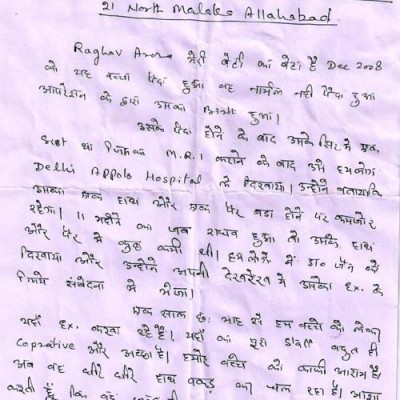 21 North Malaka Allahabad.
Raghav Arora मेरी बेटी का बेटा है Dec 2008
को यह बच्चा पैदा हुआ वह नार्मल नही पैदा हुआ
आपरेशन के द्वारा उसका Birth हुआ।
उसके पैदा होने के बाद उसके सिर में एक
था जिसका M.R.I कराने के बाद उसे हमलोग
Delhi Appolo Hospital में दिखाया। उन्होने बताया कि
उसका एक हाथ और एक पैर बडा होने पर कमजोर
रहेगा। 11 महीने का जब राघव हुआ तो उसके हाथ
और पैर में कुछ कमी थी। हम लोगो ने डा० जैन को
दिखाया और उन्होने अपनी देखरेख में उसको Ex. के
लिये संवेदना में भेजा।
एक साल छः माह से हम बच्चे को लेकर
यहाँ Ex. करवा रहे है। यहाँ का पूरा Staff बहुत ही
Coprative और अच्छा है। हमारे बच्चे को काफी आराम है।
अब वह धीरे धीरे हाथ पकड़ कर चल रहा है। आशा
करती हूँ कि वह